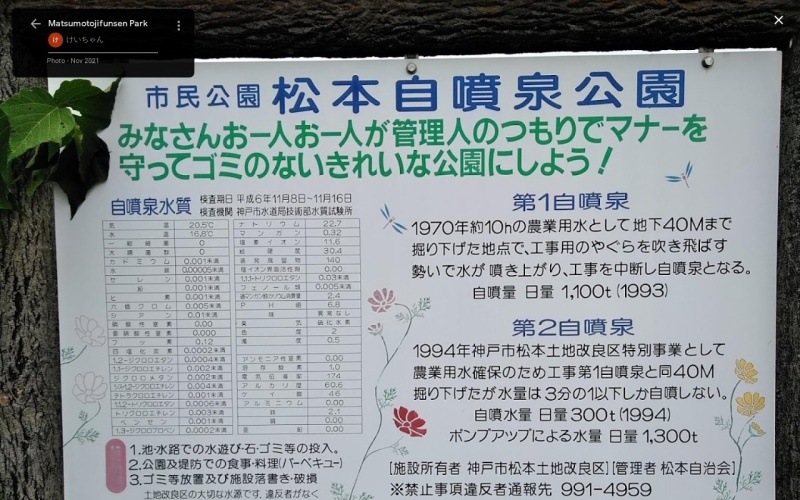 Matsumotojifunsen Park
け けいちゃん
Photo - Nov 2021
市民公園 松本自噴泉公園
みなさんお一人お一人が管理人のつもりでマナーを
守ってゴミのないきれいな公園にしよう！
自噴泉水質 検査期日 平成6年11月8日~11月16日
検査機関 神戸市水道局技術部水質試験所
気温 20.5℃
水温 16.8℃
一般細菌 0
大腸菌数 0
カドミウム 0.001未満
水銀 0.00005未満
セレン 0.001未満
鉛 0.001未満
ヒ素 0.001未満
六価クロム 0.005未満
シアン 0.01未満
硝酸性窒素 0.00
亜硝酸性窒素 0.00
フッ素 0.12
四塩化炭素 0.0002未満
1,2-ジクロロエタン 0.0004未満
1,1-ジクロロエチレン 0.002未満
ジクロロメタン 0.002未満
シス-1,2-ジクロロエチレン 0.004未満
テトラクロロエチレン 0.001未満
1,1,2-トリクロロエタン 0.0006未満
トリクロロエチレン 0.003未満
ベンゼン 0.001未満
1,3-ジクロロプロペン 0.0002未満
ナトリウム 22.7
マンガン 0.32
塩素イオン 11.6
総硬度 30.4
蒸発残留物 140
陰イオン界面活性剤 0.00
1,1,1-トリクロロエタン 0.03未満
フェノール類 0.005未満
過マンガン酸カリウム消費量 2.4
PH 6.8
味 異常なし
臭気 硫化水素
色度 2
濁度 0.5
アンモニア性窒素 0.00
溶存酸素 1.0
電気伝導率 174
アルカリ度 60.6
ケイ酸 46
アルミニウム 0.00
鉄 2.1
銅 0.00
亜鉛 0.00
1.池・水路での水遊び・石・ゴミ等の投入。
2.公園及堤防での食事・料理(バーベキュー)
3.ゴミ等放置及び施設落書き・破損
土地改良区の大切な水源です。違反者がなく
第1自噴泉
1970年約10hの農業用水として地下40Mまで
掘り下げた地点で、工事用のやぐらを吹き飛ばす
勢いで水が噴き上がり、工事を中断し自噴泉となる。
自噴量 日量 1,100t (1993)
第2自噴泉
1994年神戸市松本土地改良区特別事業として
農業用水確保のため工事第1自噴泉と同40M
掘り下げたが水量は3分の1以下しか自噴しない。
自噴水量 日量300t (1994)
ポンプアップによる水量 日量 1,300t
[施設所有者 神戸市松本土地改良区][管理者 松本自治会]
※禁止事項違反者通報先 991-4959